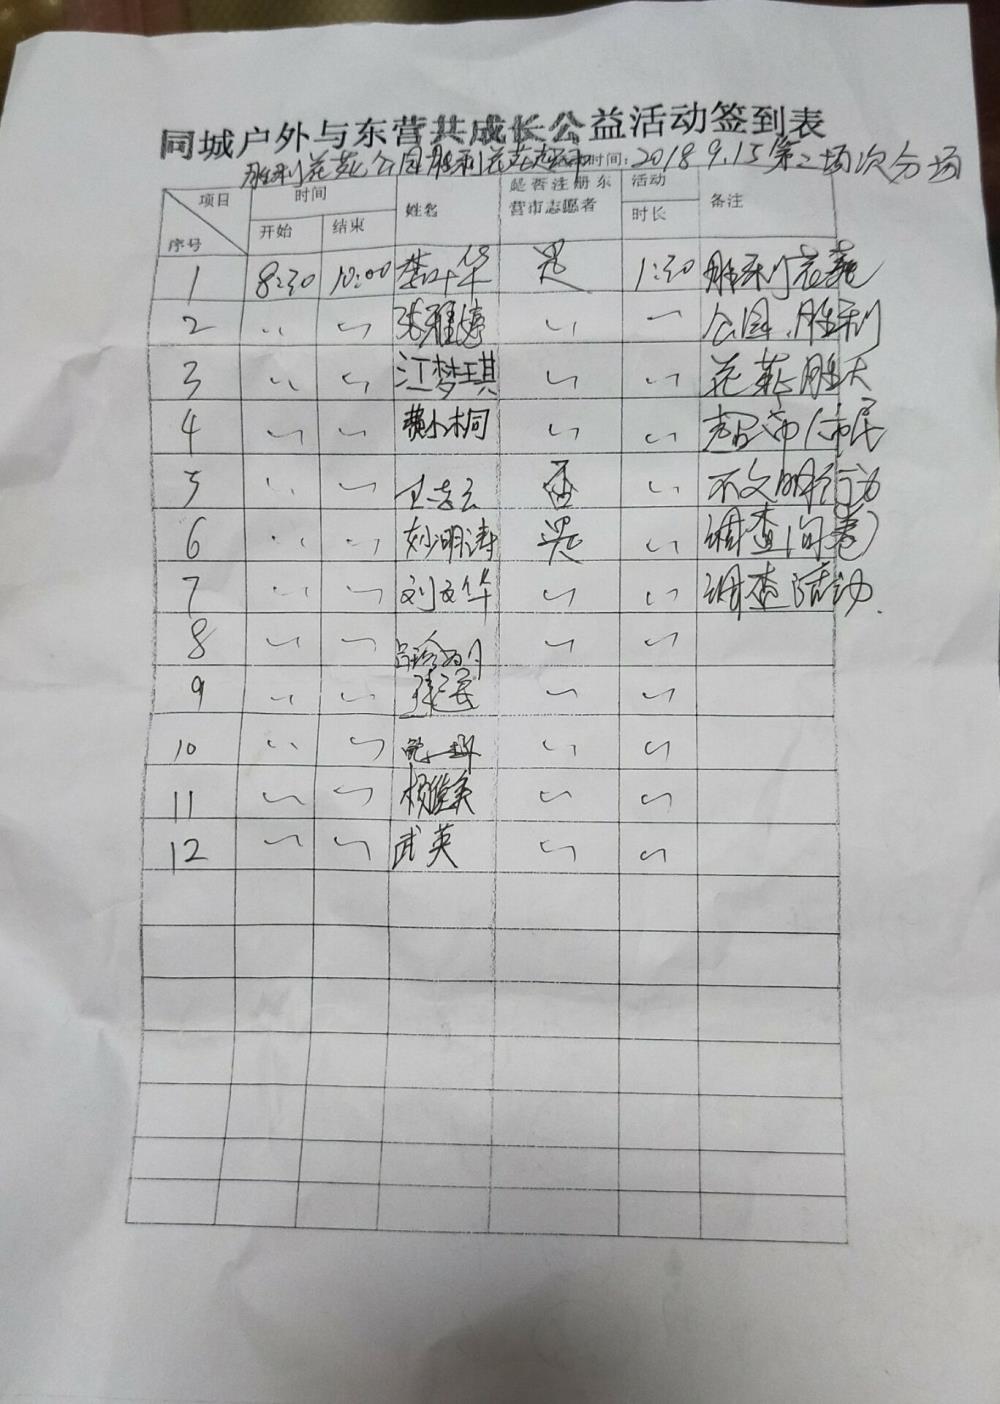 同城户外与东营共成长公益活动签到表
胜利花苑公园胜利花苑超市 时间：2018 9.15 第二场次分场
项目 序号 时间 开始 结束 姓名 是否注册东营市志愿者 活动时长 备注
1 8:30 10:00 李叶华 是 1:30 胜利花苑
2 张雅婷 公园、胜利
3 江梦琪 花苑胜大
4 费小桐 超市 市民
5 否 不文明行为
6 明涛 是 调查问卷
7 刘文华 调查活动.
8
9
10
11 杨俊美
12 武英